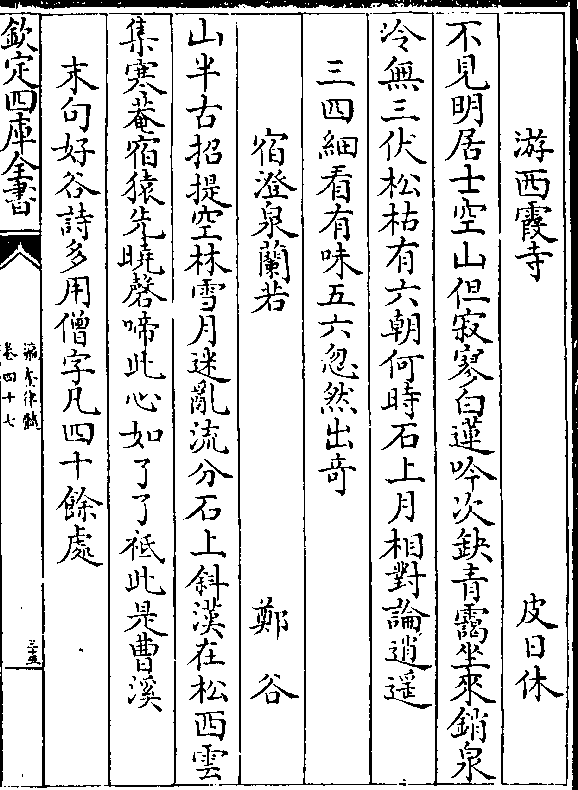 游西霞寺　皮日休
不見明居士空山但寂寥白蓮吟次缺青靄坐來銷泉
冷無三伏松枯有六朝何時石上月相對論逍遥
三四細看有味五六忽然出竒
宿澄泉蘭若　鄭谷
山半古招提空林雪月迷亂流分石上斜漢在松西雲
集寒菴宿猿先曉磬啼此心如了了祗此是曹溪
末句好谷詩多用僧字凡四十餘處
欽定四庫全書
瀛奎律髓
卷四十七
三十五